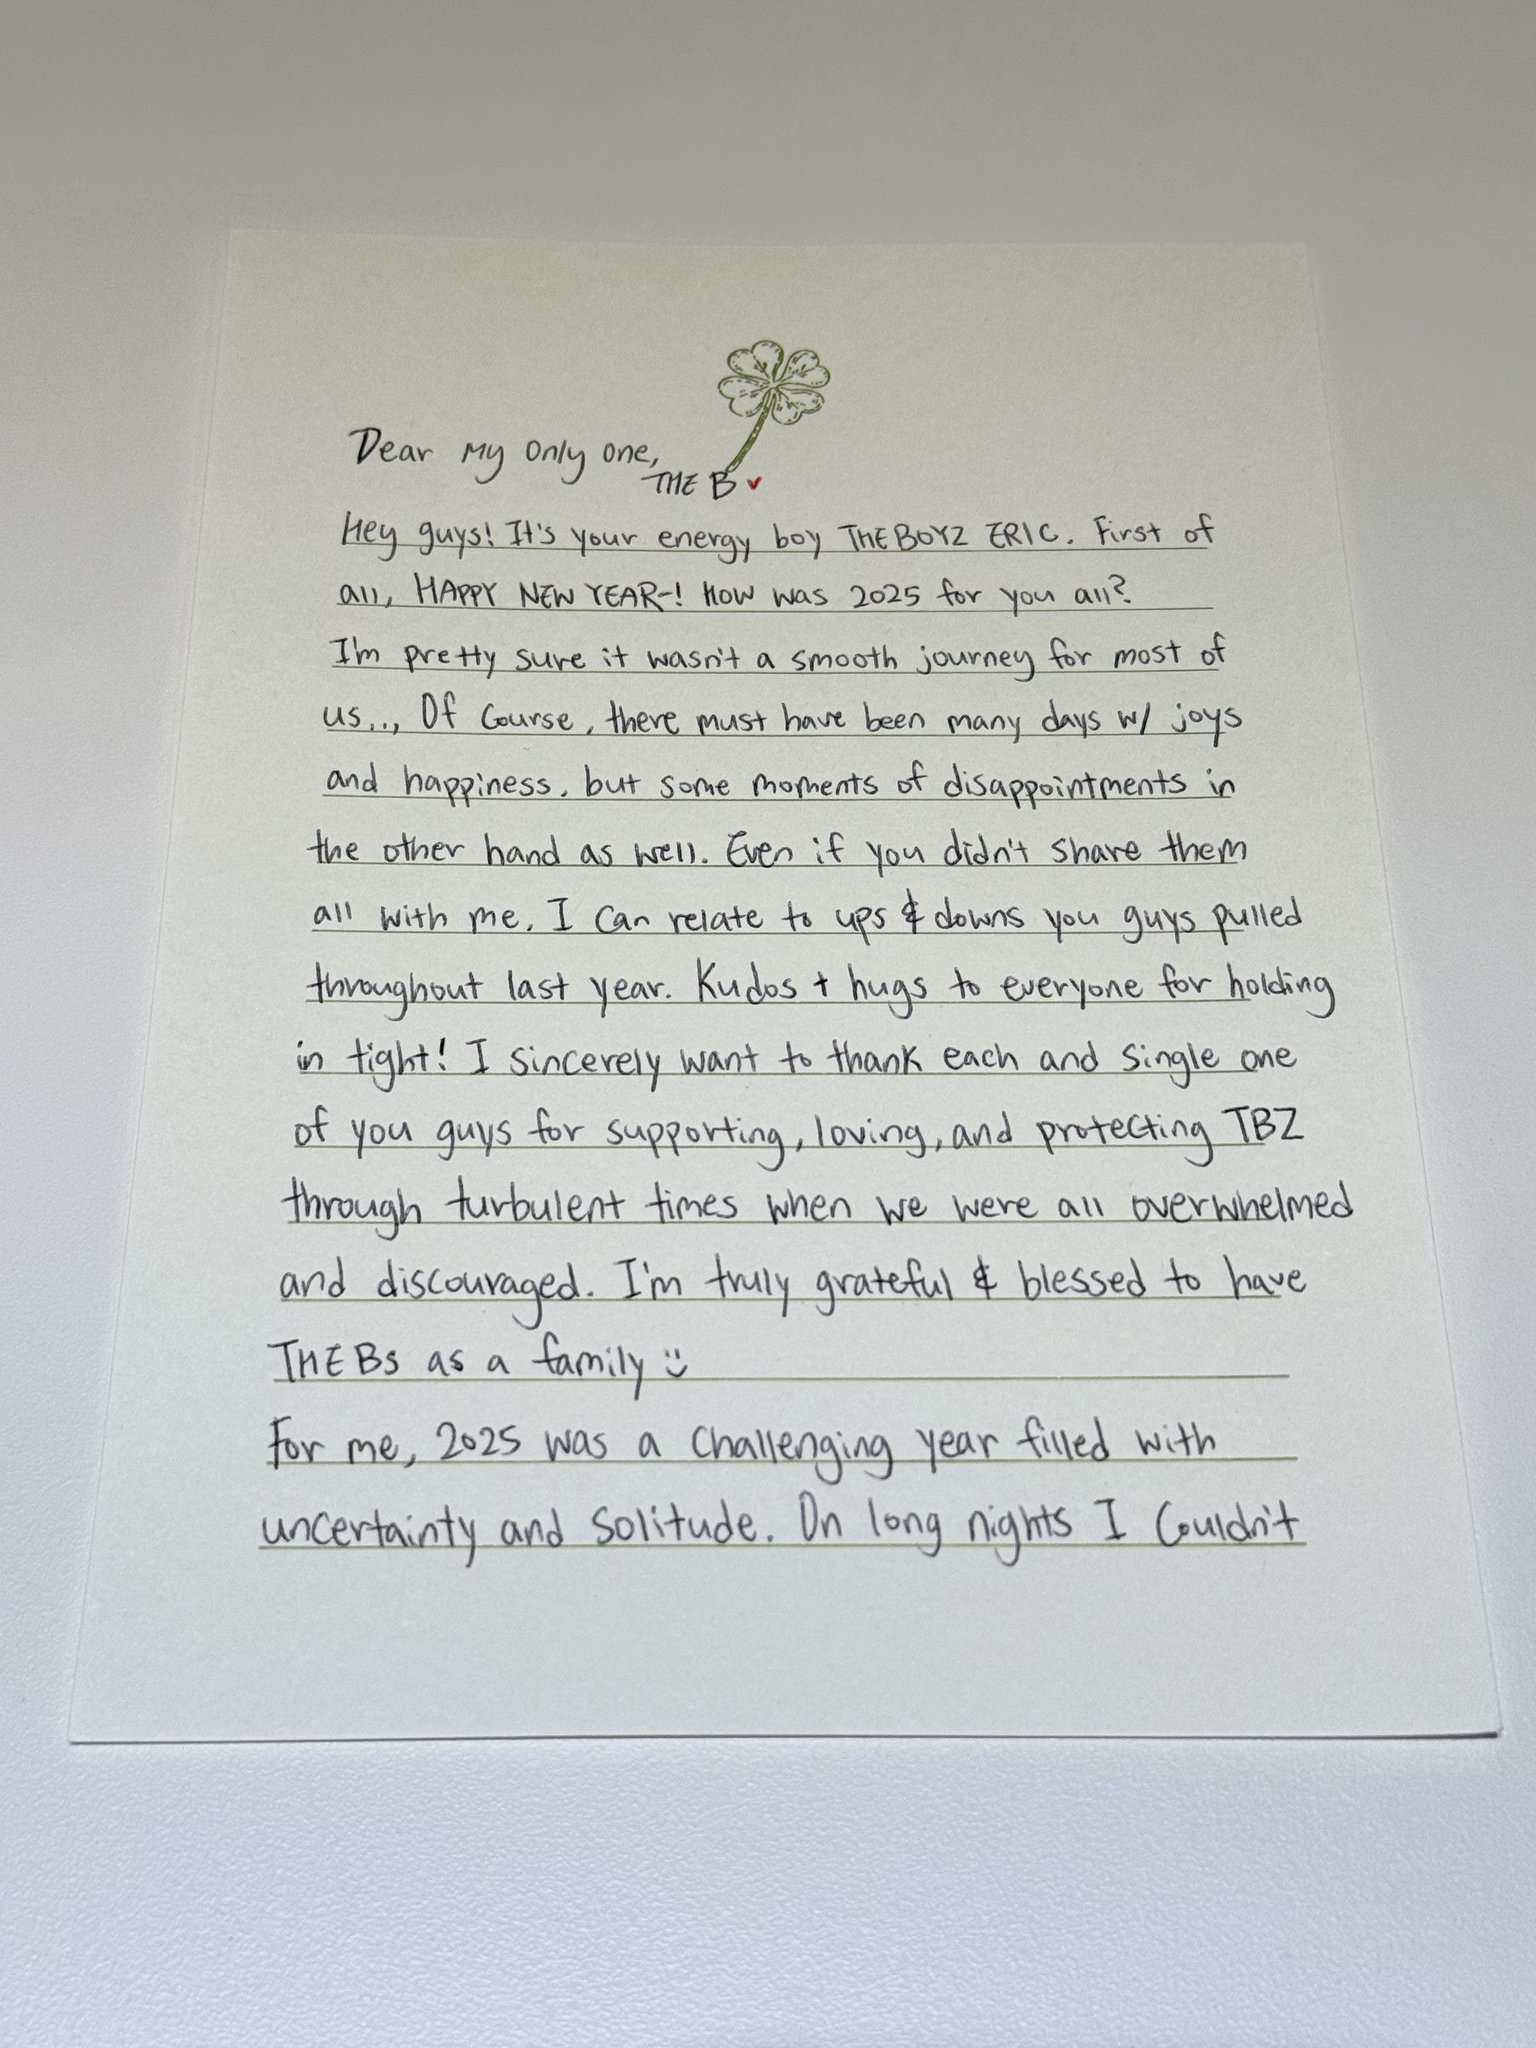 Dear My Only One,
THE B ♥
Hey guys! It's your energy boy THEBOYZ ERIC. First of
all, HAPPY NEW YEAR~! How was 2025 for you all?
I'm pretty sure it wasn't a smooth journey for most of
us..., Of Course, there must have been many days w/ joys
and happiness, but some moments of disappointments in
the other hand as well. Even if you didn't share them
all with me, I can relate to ups & downs you guys pulled
throughout last year. Kudos + hugs to everyone for holding
in tight! I sincerely want to thank each and single one
of you guys for supporting, loving, and protecting TBZ
through turbulent times when we were all overwhelmed
and discouraged. I'm truly grateful & blessed to have
THEBs as a family :)
For me, 2025 was a challenging year filled with
uncertainty and solitude. On long nights I couldn't